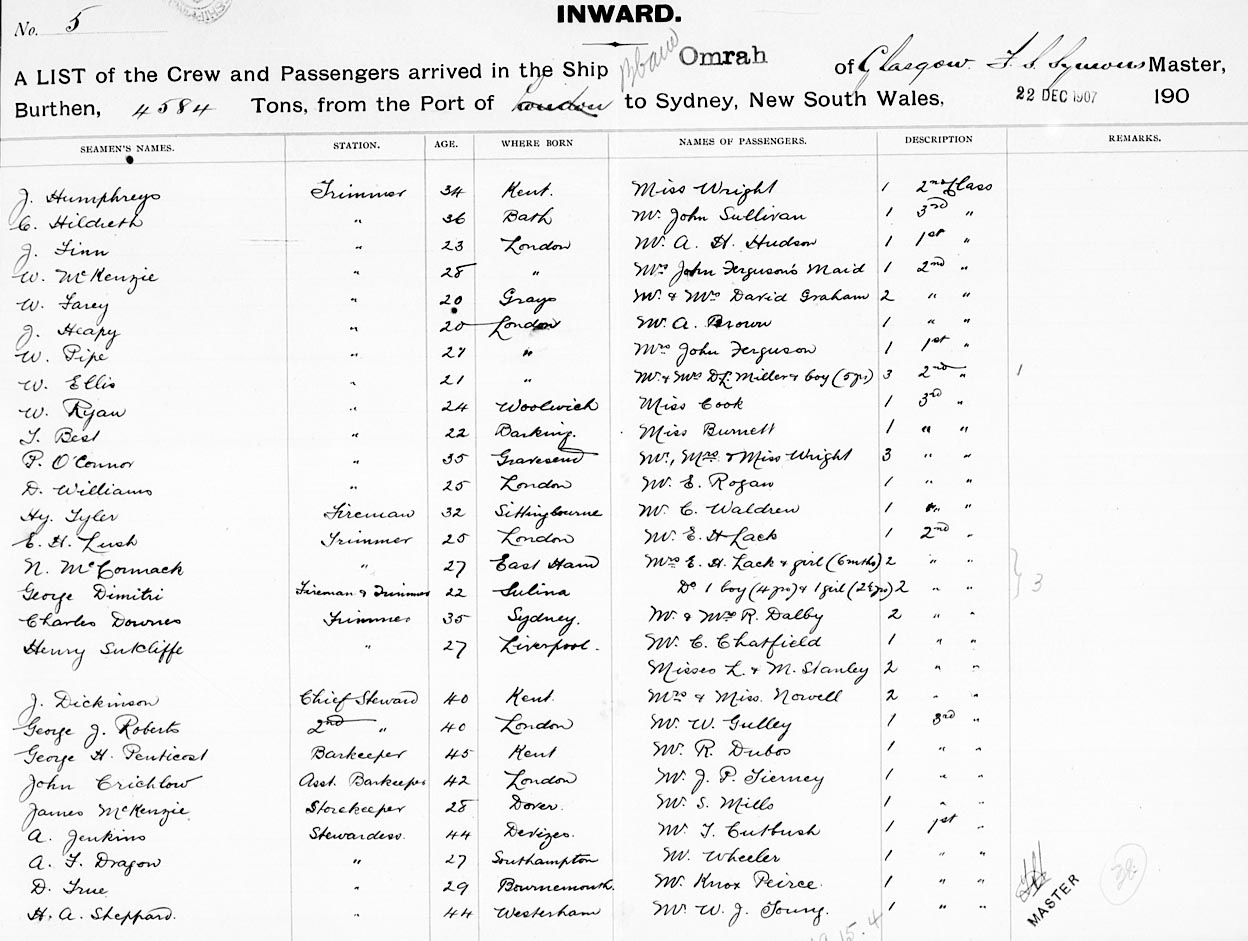 No. 5
INWARD.
A LIST of the Crew and Passengers arrived in the Ship Omrah of Glasgow F. S. Symons Master,
Burthen, 4584 Tons, from the Port of London to Sydney, New South Wales, 22 DEC 1907 190
SEAMEN'S NAMES. STATION. AGE. WHERE BORN NAMES OF PASSENGERS. DESCRIPTION REMARKS.
J. Humphreys Trimmer 34 Kent. Miss Wright 1 2nd Class
C. Hildreth " 36 Bath Mr. John Sullivan 1 3rd "
J. Finn " 23 London Mr. A. H. Hudson 1 1st "
W. McKenzie " 28 " Mrs John Ferguson's Maid 1 2nd "
W. Farey " 20 Grays Mr. & Mrs David Graham 2 " "
J. Heapy " 20 London Mr. A. Brown 1 " "
W. Pipe " 27 " Mrs John Ferguson 1 1st "
W. Ellis " 21 " Mr. & Mrs D. L. Miller & boy (5yrs) 3 2nd " 1
W. Ryan " 24 Woolwich Miss Cook 1 3rd "
T. Best " 22 Barking. Miss Burnett 1 " "
P. O'Connor " 35 Gravesend Mr., Mrs & Miss Wright 3 " "
D. Williams " 25 London Mr. E. Rogan 1 " "
Hy. Tyler Fireman 32 Sittingbourne Mr. C. Waldren 1 " "
E. H. Lush Trimmer 25 London Mr. E. H Lack 1 2nd "
N. McCormack " 27 East Ham Mrs E. H. Lack & girl (6mths) 2 " "
George Dimitri Fireman & Trimmer 22 Sulina Do 1 boy (4yrs) & 1 girl (2½yrs) 2 " " } 3
Charles Downes Trimmer 35 Sydney. Mr. & Mrs R. Dalby 2 " "
Henry Sutcliffe " 27 Liverpool. Mr. C. Chatfield 1 " "
Misses L. & M. Stanley 2 " "
J. Dickinson Chief Steward 40 Kent. Mrs & Miss. Nowell 2 " "
George J. Roberts 2nd " 40 London Mr. W. Gulley 1 3rd "
George H. Penticost Barkeeper 45 Kent Mr. R. Dubos 1 " "
John Crichlow Asst. Barkeeper 42 London Mr. J. P. Tierney 1 " "
James McKenzie Storekeeper 28 Dover. Mr. S. Mills 1 " "
A. Jenkins Stewardess. 44 Devizes. Mr. T. Cutbush 1 1st "
A. F. Dragon " 27 Southampton Mr. Wheeler 1 " "
D. True " 29 Bournemouth. Mr. Knox Peirce. 1 " "
H. A. Sheppard. " 44 Westerham Mr. W. J. Young. 1 " "
MASTER
38
15.4